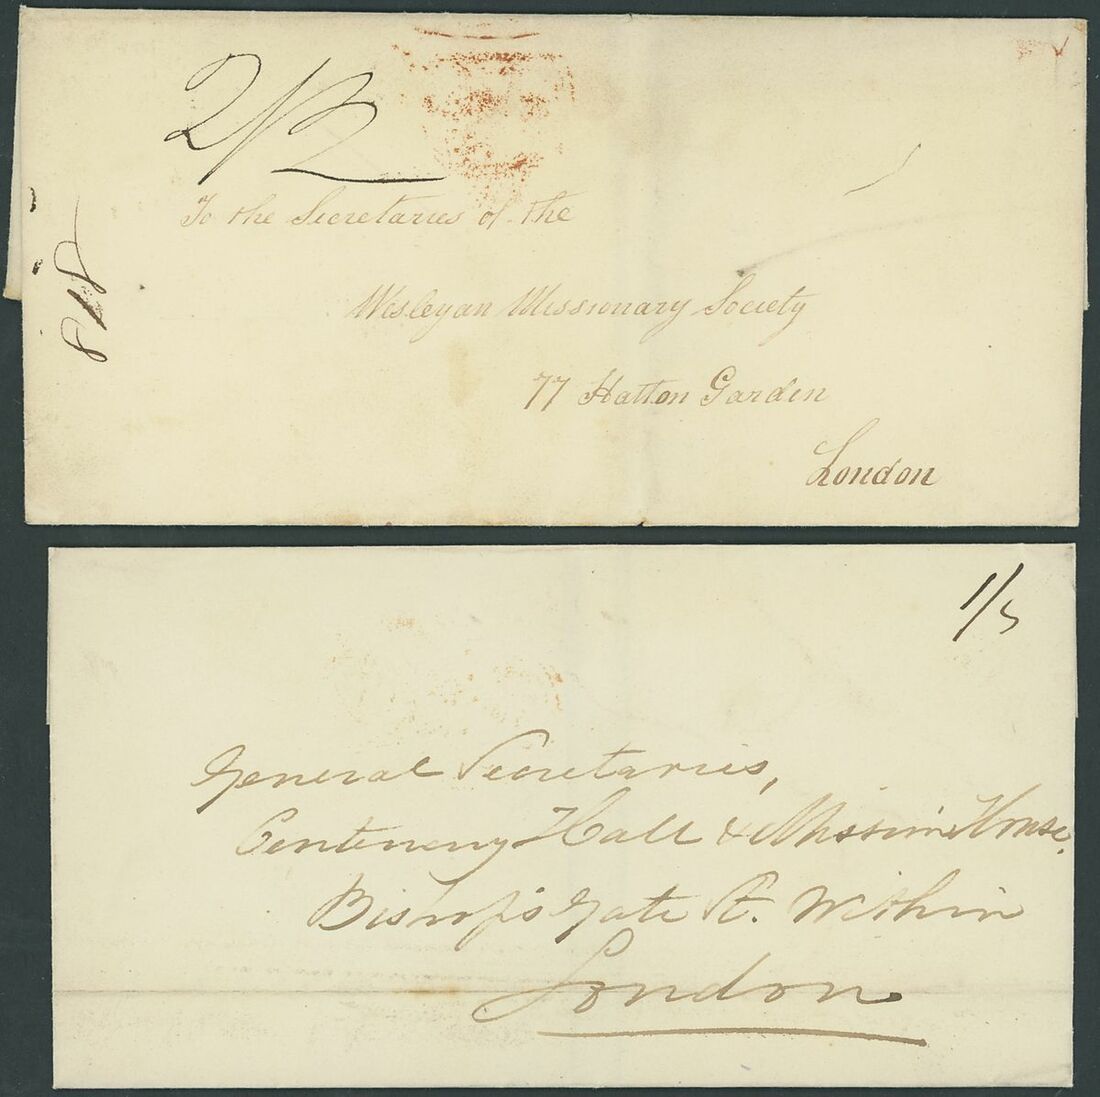 2/2
To the Secretaries of the
Wesleyan Missionary Society
77 Hatton Garden
London
818
1/5
General Secretaries,
Centenary Hall & Mission House,
Bishop's Gate St. Within
London